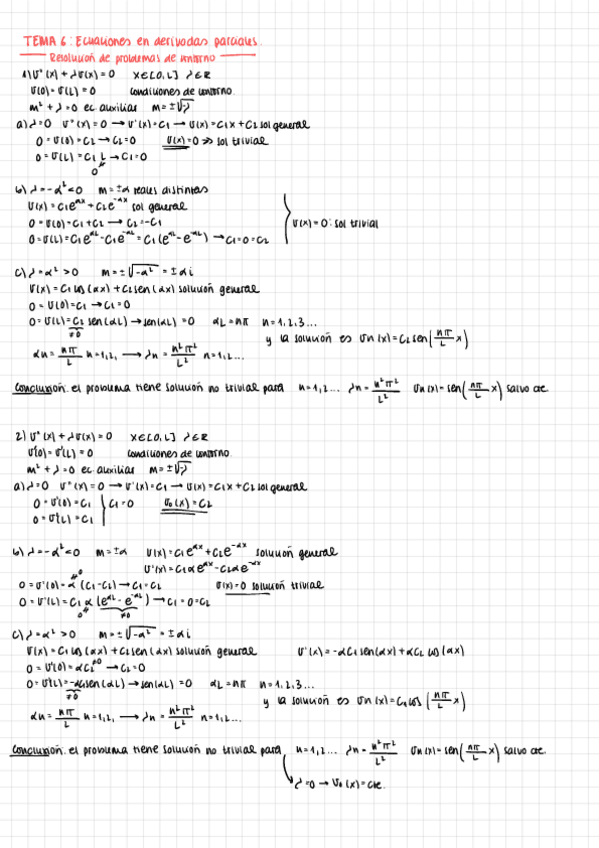 TEMA 6: Ecuaciones en derivadas parciales.
Resolución de problemas de contorno
1) U''(x) + λU(x) = 0 x∈[0, L] λ∈R
U(0) = U(L) = 0 condiciones de contorno.
m² + λ = 0 ec auxiliar m = ±√-λ
a) λ=0 U''(x) = 0 → U'(x) = C1 → U(x) = C1x + C2 sol general
0 = U(0) = C2 → C2 = 0 U(x) = 0 => sol trivial
0 = U(L) = C1 L → C1 = 0
0
b) λ = -α² < 0 m = ±α reales distintas
U(x) = C1e^αx + C2e^-αx sol general
0 = U(0) = C1 + C2 → C2 = -C1 U(x) = 0: sol trivial
0 = U(L) = C1e^αL - C1e^-αL = C1(e^αL - e^-αL) → C1 = 0 = C2
c) λ = α² > 0 m = ±√-α² = ±αi
U(x) = C1 cos(αx) + C2 sen(αx) solución general
0 = U(0) = C1 → C1 = 0
0 = U(L) = C2 sen(αL) → sen(αL) = 0 αL = nπ n = 1, 2, 3...
≠0 y la solución es Un(x) = C2 sen(nπ/L x)
αn = nπ/L n = 1, 2, → λn = n²π²/L² n = 1, 2...
Conclusión: el problema tiene solución no trivial para n = 1, 2... λn = n²π²/L² Un(x) = sen(nπ/L x) salvo cte.
2) U''(x) + λU(x) = 0 x∈[0, L] λ∈R
U'(0) = U'(L) = 0 condiciones de contorno.
m² + λ = 0 ec auxiliar m = ±√-λ
a) λ=0 U''(x) = 0 → U'(x) = C1 → U(x) = C1x + C2 sol general
0 = U'(0) = C1 C1 = 0 U0(x) = C2
0 = U'(L) = C1
b) λ = -α² < 0 m = ±α U(x) = C1e^αx + C2e^-αx solución general
U'(x) = C1αe^αx - C2αe^-αx
0 = U'(0) = α(C1 - C2) → C1 = C2 U(x) = 0 solución trivial
0 = U'(L) = C1α(e^αL - e^-αL) → C1 = 0 = C2
≠0 ≠0
c) λ = α² > 0 m = ±√-α² = ±αi
U(x) = C1 cos(αx) + C2 sen(αx) solución general U'(x) = -αC1 sen(αx) + αC2 cos(αx)
0 = U'(0) = αC2 → C2 = 0
0 = U'(L) = -αC1 sen(αL) → sen(αL) = 0 αL = nπ n = 1, 2, 3...
≠0 y la solución es Un(x) = C1 cos(nπ/L x)
αn = nπ/L n = 1, 2, → λn = n²π²/L² n = 1, 2...
Conclusión: el problema tiene solución no trivial para n = 1, 2... λn = n²π²/L² Un(x) = sen(nπ/L x) salvo cte.
λ = 0 → U0(x) = cte.